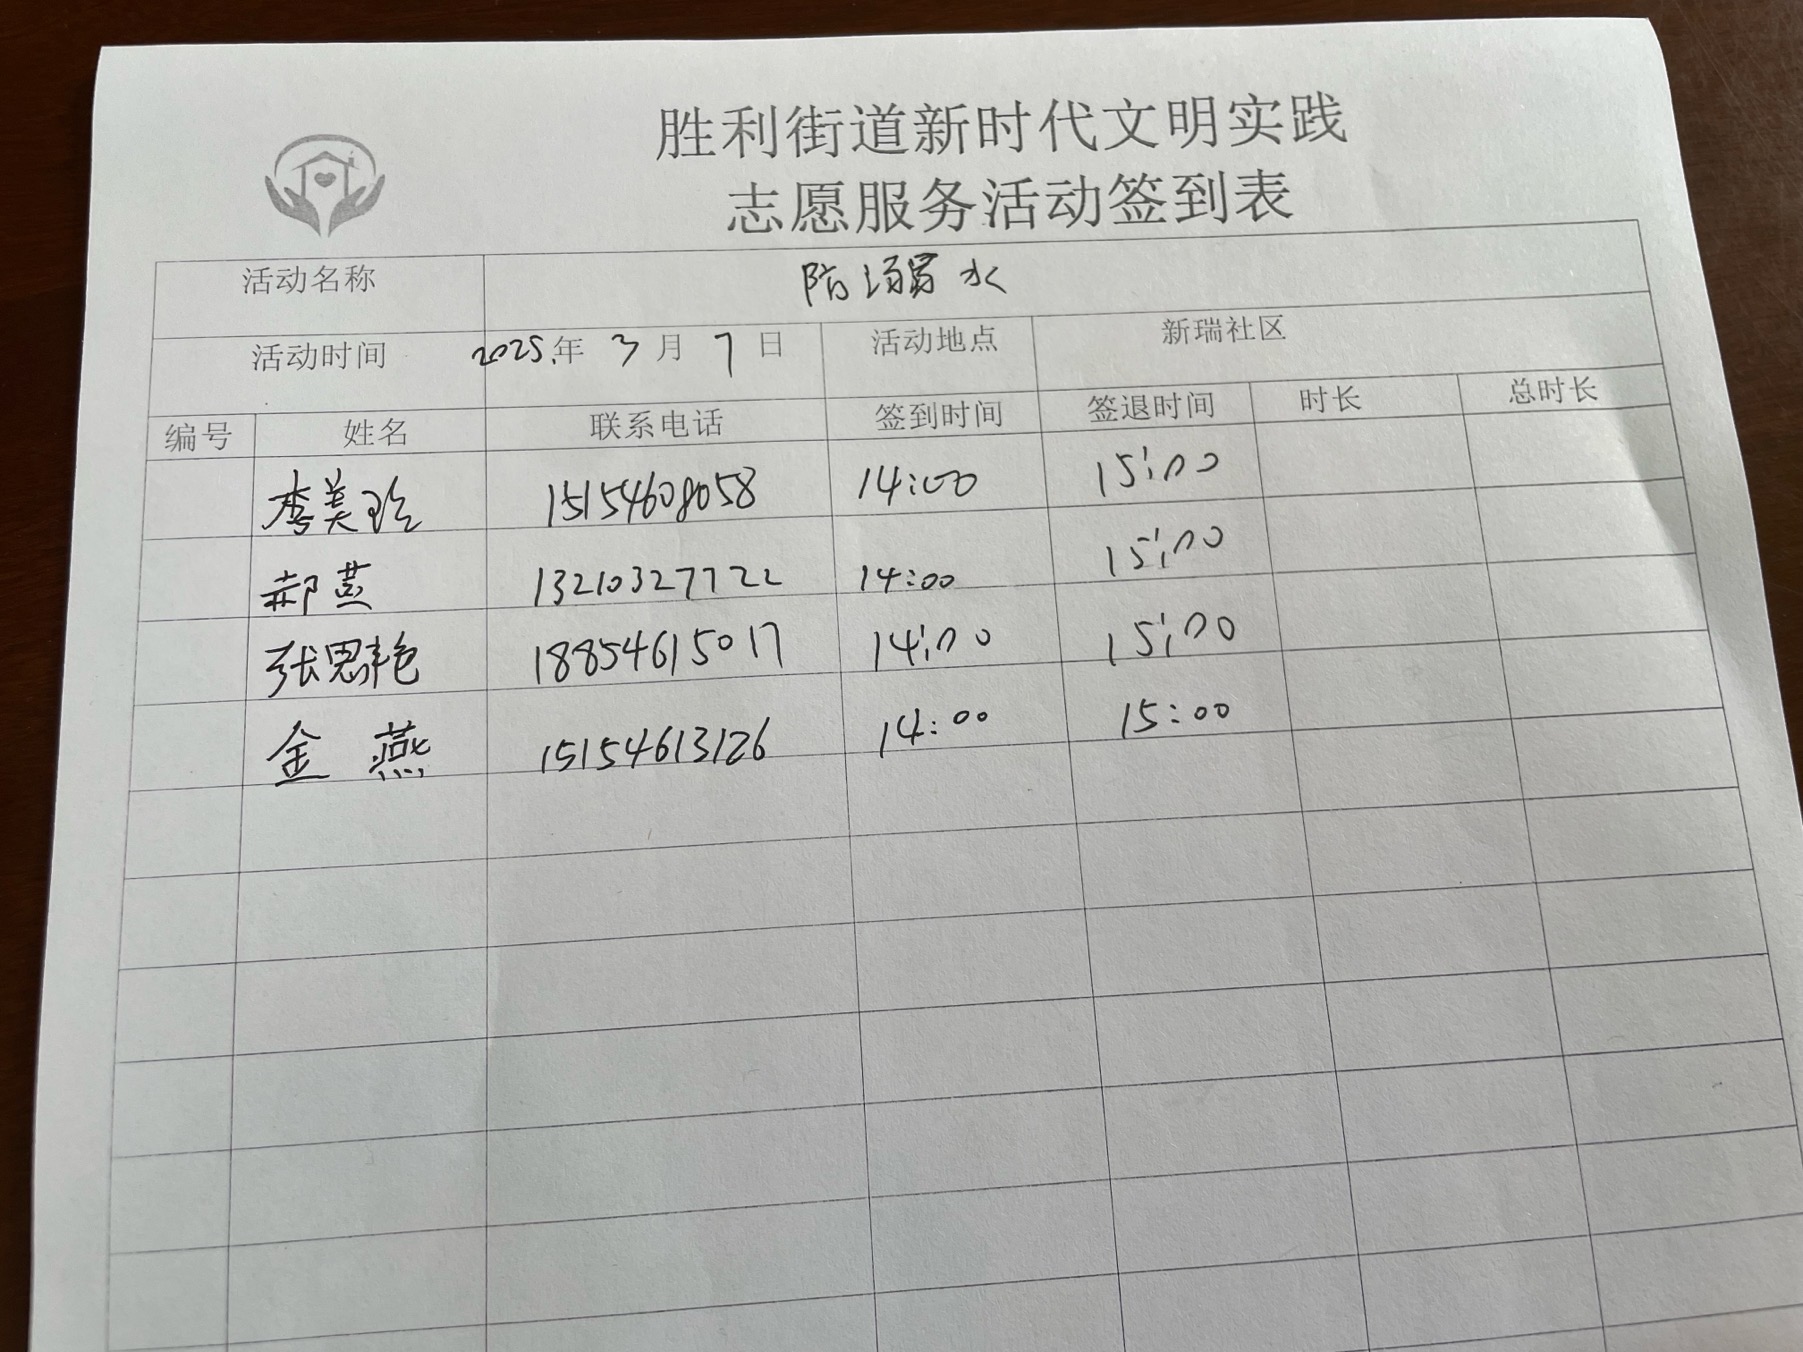 胜利街道新时代文明实践
志愿服务活动签到表
活动名称 防溺水
活动时间 2025.年 3 月 7 日 活动地点 新瑞社区
编号 姓名 联系电话 签到时间 签退时间 时长 总时长
李美玲 15154608058 14:00 15:00
郝燕 13210327722 14:00 15:00
张思艳 18854615017 14:00 15:00
金燕 15154613126 14:00 15:00